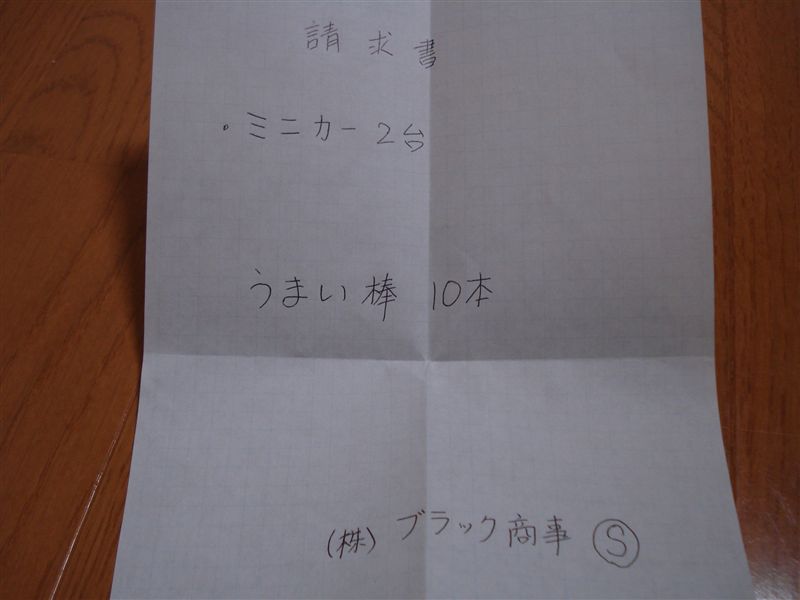 請求書
・ミニカー 2台
うまい棒 10本
(株) ブラック商事 Ⓢ